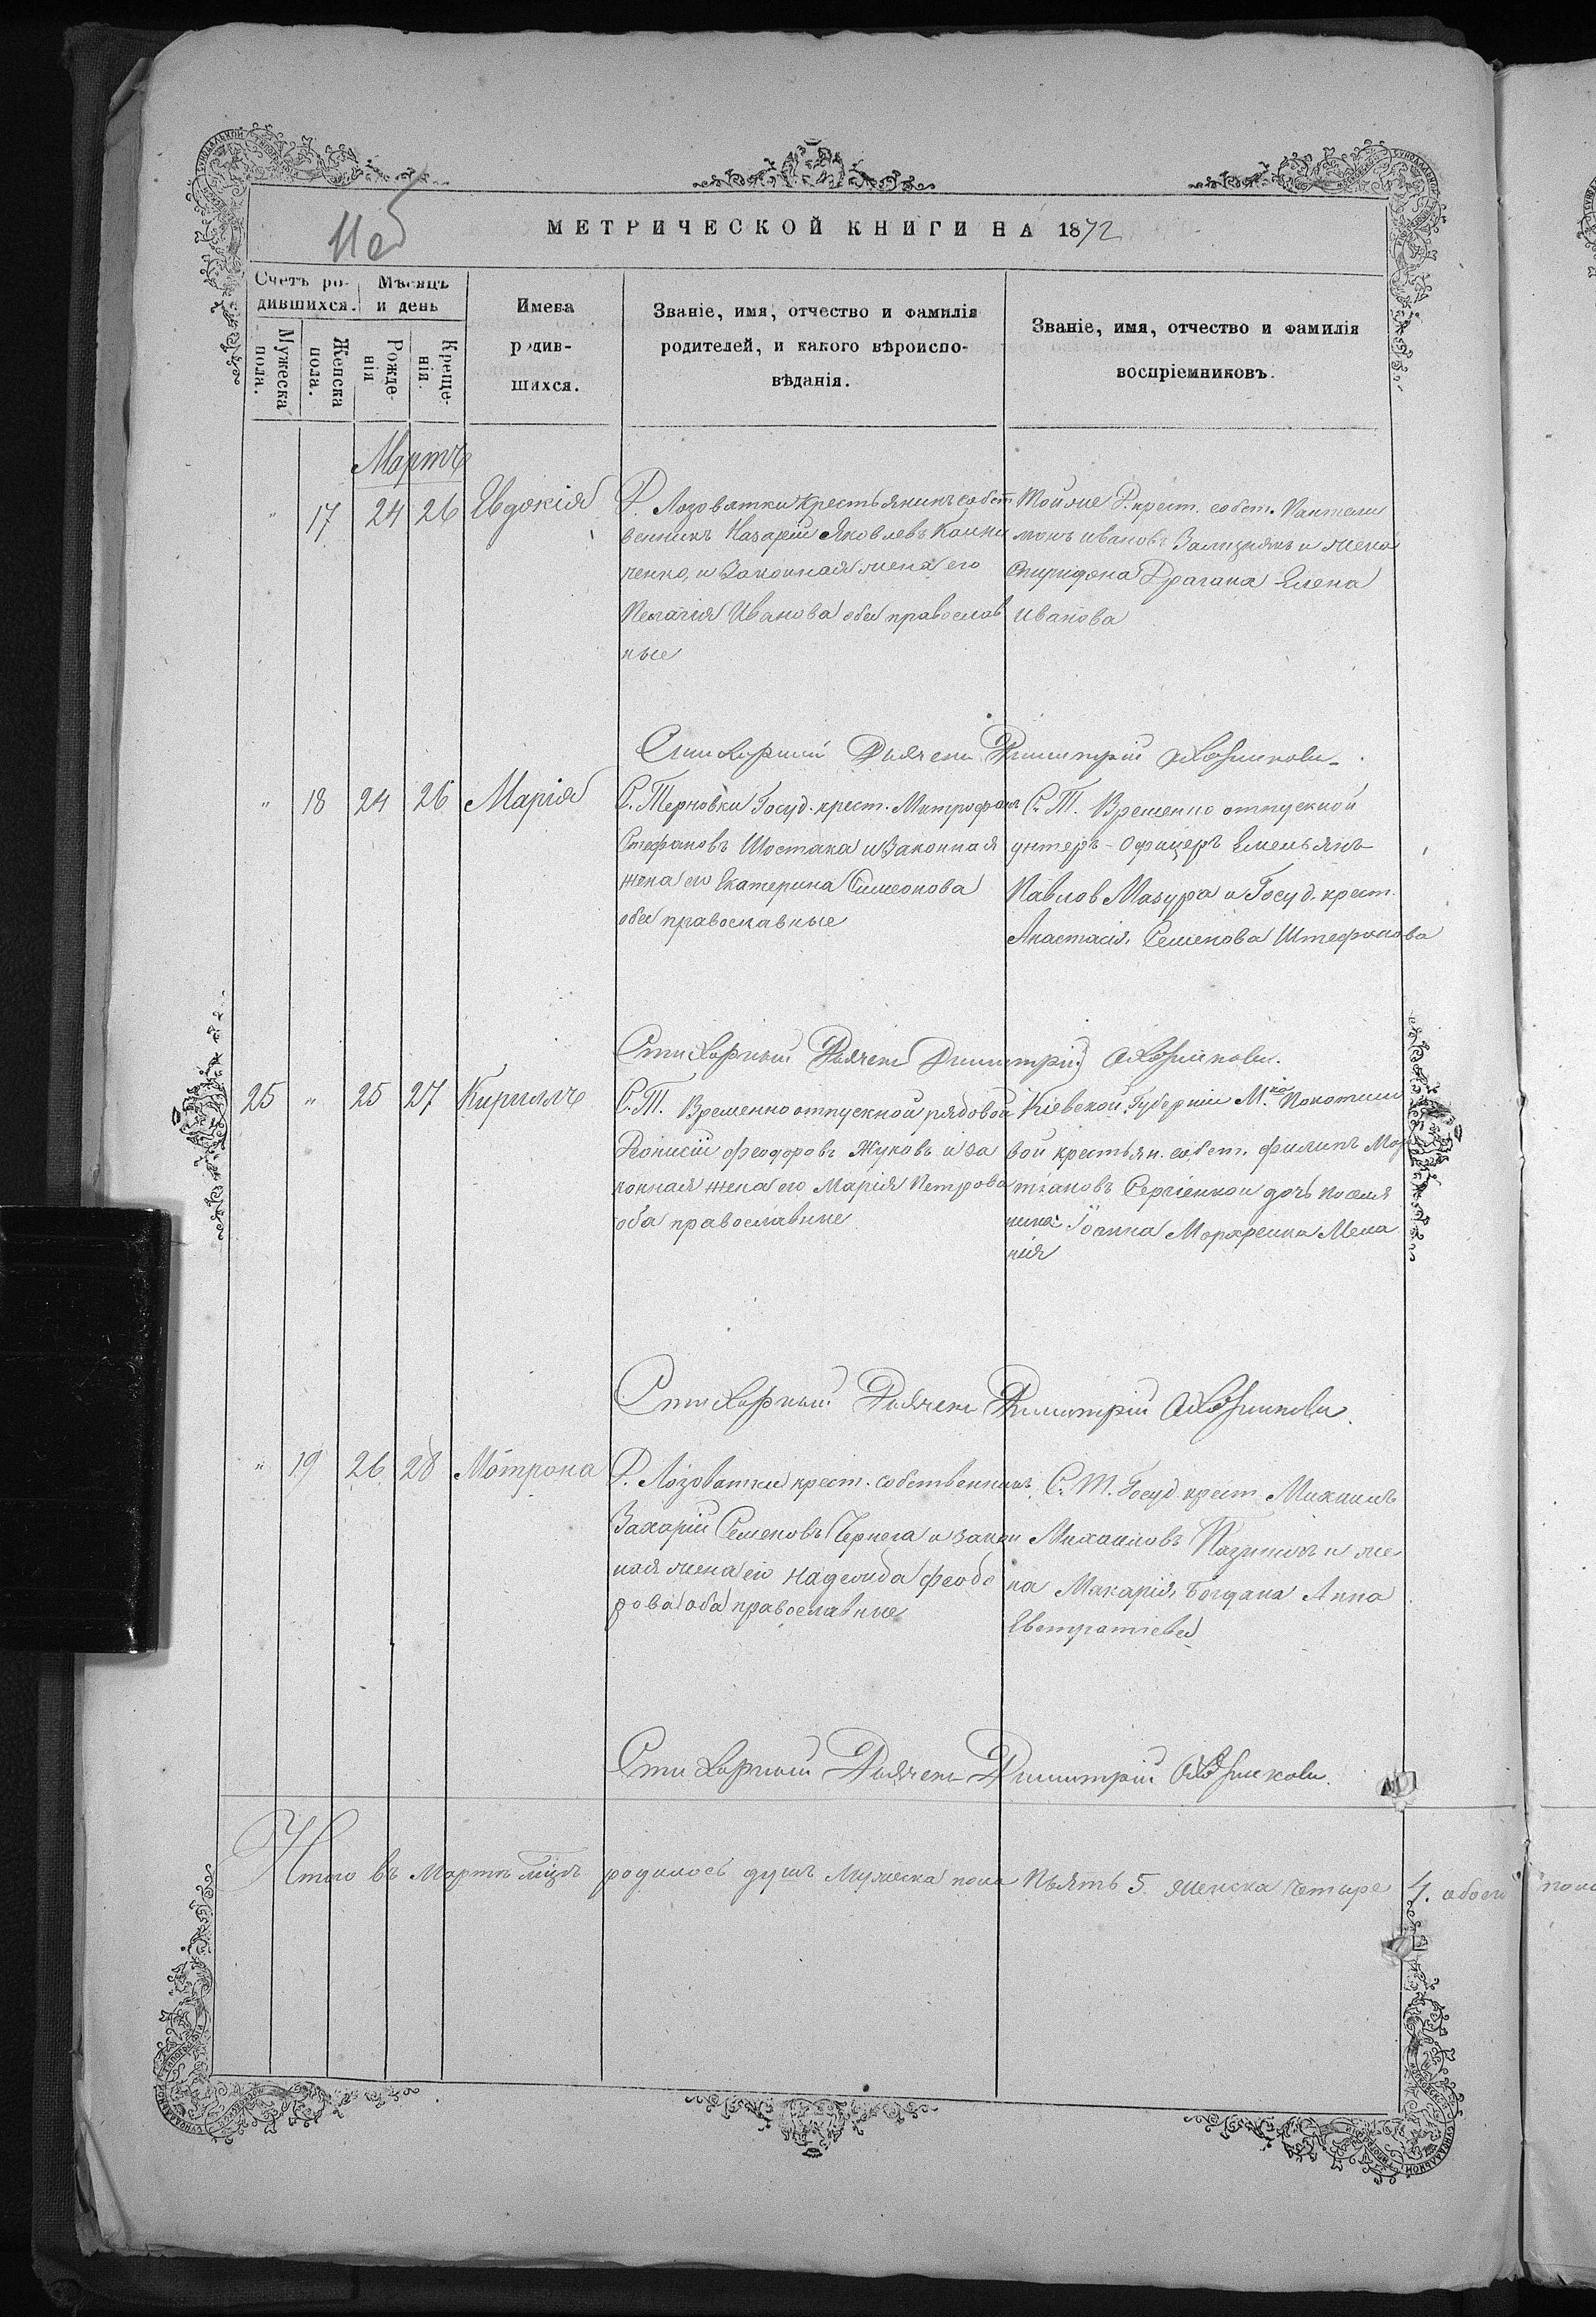 МЕТРИЧЕСКОЙ КНИГИ НА 1872
Счетъ ро-
дившихся.
Мѣсяцъ
и день
Мужеска
пола.
Женска
пола.
Рожде-
нія
Креще-
нія.
Имена
родив-
шихся.
Званіе, имя, отчество и фамилія
родителей, и какого вѣроиспо-
вѣданія.
Званіе, имя, отчество и фамилія
воспріемниковъ.
Мартъ
" 17 24 26 Евдокія
Д. Лозоватки крестьянинъ собст
венникъ Назарій Яковлевъ
ченко, и законная жена его
Пелагія Иванова оба православ
ные
Тойже Д. крест. собст. Пантели
монъ Ивановъ Зализнякъ и жена
Спиридона Драгана Елена
Иванова
Стихарный Дьячекъ Димитрій
" 18 24 26 Марія
С. Терновки Госуд. крест. Митрофанъ
Стефановъ Шостака и законная
жена его Екатерина Симеонова
оба православные
С. Т. Временно отпускной
унтеръ-офицеръ Емельянъ
Павлов Мазура и Госуд. крест.
Анастасія Семенова Штефанова
Стихарный Дьячекъ Димитрій
25 " 25 27 Кириллъ
С. Т. Временно отпускной рядовой
Діонисій Феодоровъ Жуковъ и за
конная жена его Марія Петрова
оба православные
Кіевской Губерніи М.ка Покотило
вой крестьян. собст. Филипъ Мар
тіановъ Сергіенко и дочь поселя
нина Іоанна Мела
нія
Стихарный Дьячекъ Димитрій
" 19 26 28 Мотрона
Д. Лозоватки крест. собственникъ
Захарій Семеновъ Чернега и закон
ная жена его Надежда Феодо
рова оба православные
С. Т. Госуд. крест. Михаилъ
Михаиловъ и же
на Макарія Богдана Анна
Евстратіева
Стихарный Дьячекъ Димитрій
Итого въ Мартѣ мцѣ родилось душъ мужеска пола пьять 5. женска четыре 4. обоего пола